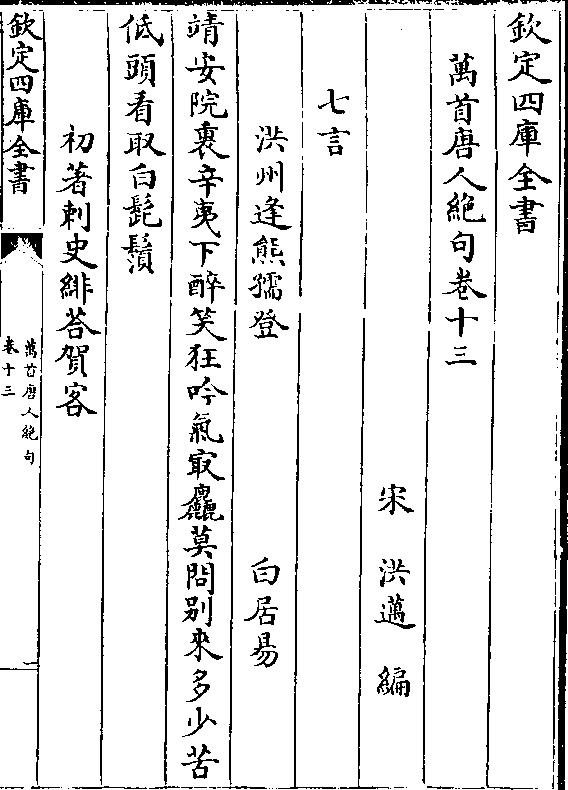 欽定四庫全書
萬首唐人絶句卷十三
宋　洪邁　編
七言
洪州逢熊孺登　白居易
靖安院裏辛夷下醉笑狂吟氣㝡麤莫問别來多少苦
低頭看取白髭鬚
初著刺史緋荅賀客
欽定四庫全書
萬首唐人絶句
卷十三
一